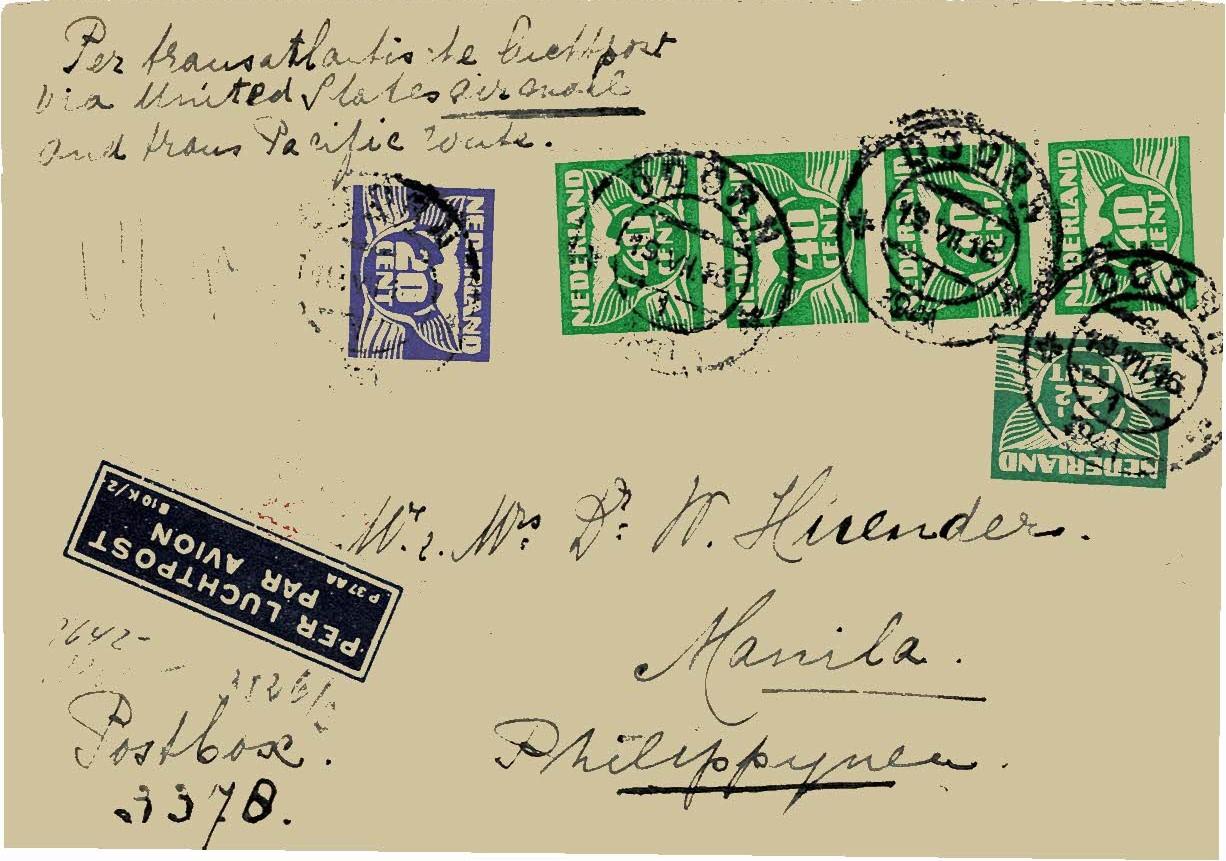 Per transatlantische Luchtpost
via United States airmail
and trans Pacific route.
NEDERLAND
20
CENT
NEDERLAND
40
CENT
NEDERLAND
40
CENT
NEDERLAND
40
CENT
NEDERLAND
40
CENT
NEDERLAND
2½
CENT
DOORN
19.VII.16
1
1941
DOORN
19.VII.16
1
1941
DOORN
19.VII.16
1
1941
PER LUCHTPOST
PAR AVION
P 3788
B10 K/2
Mr. Mrs Dr. W. Huender.
Manila.
Philippynen.
Postbox.
3378.